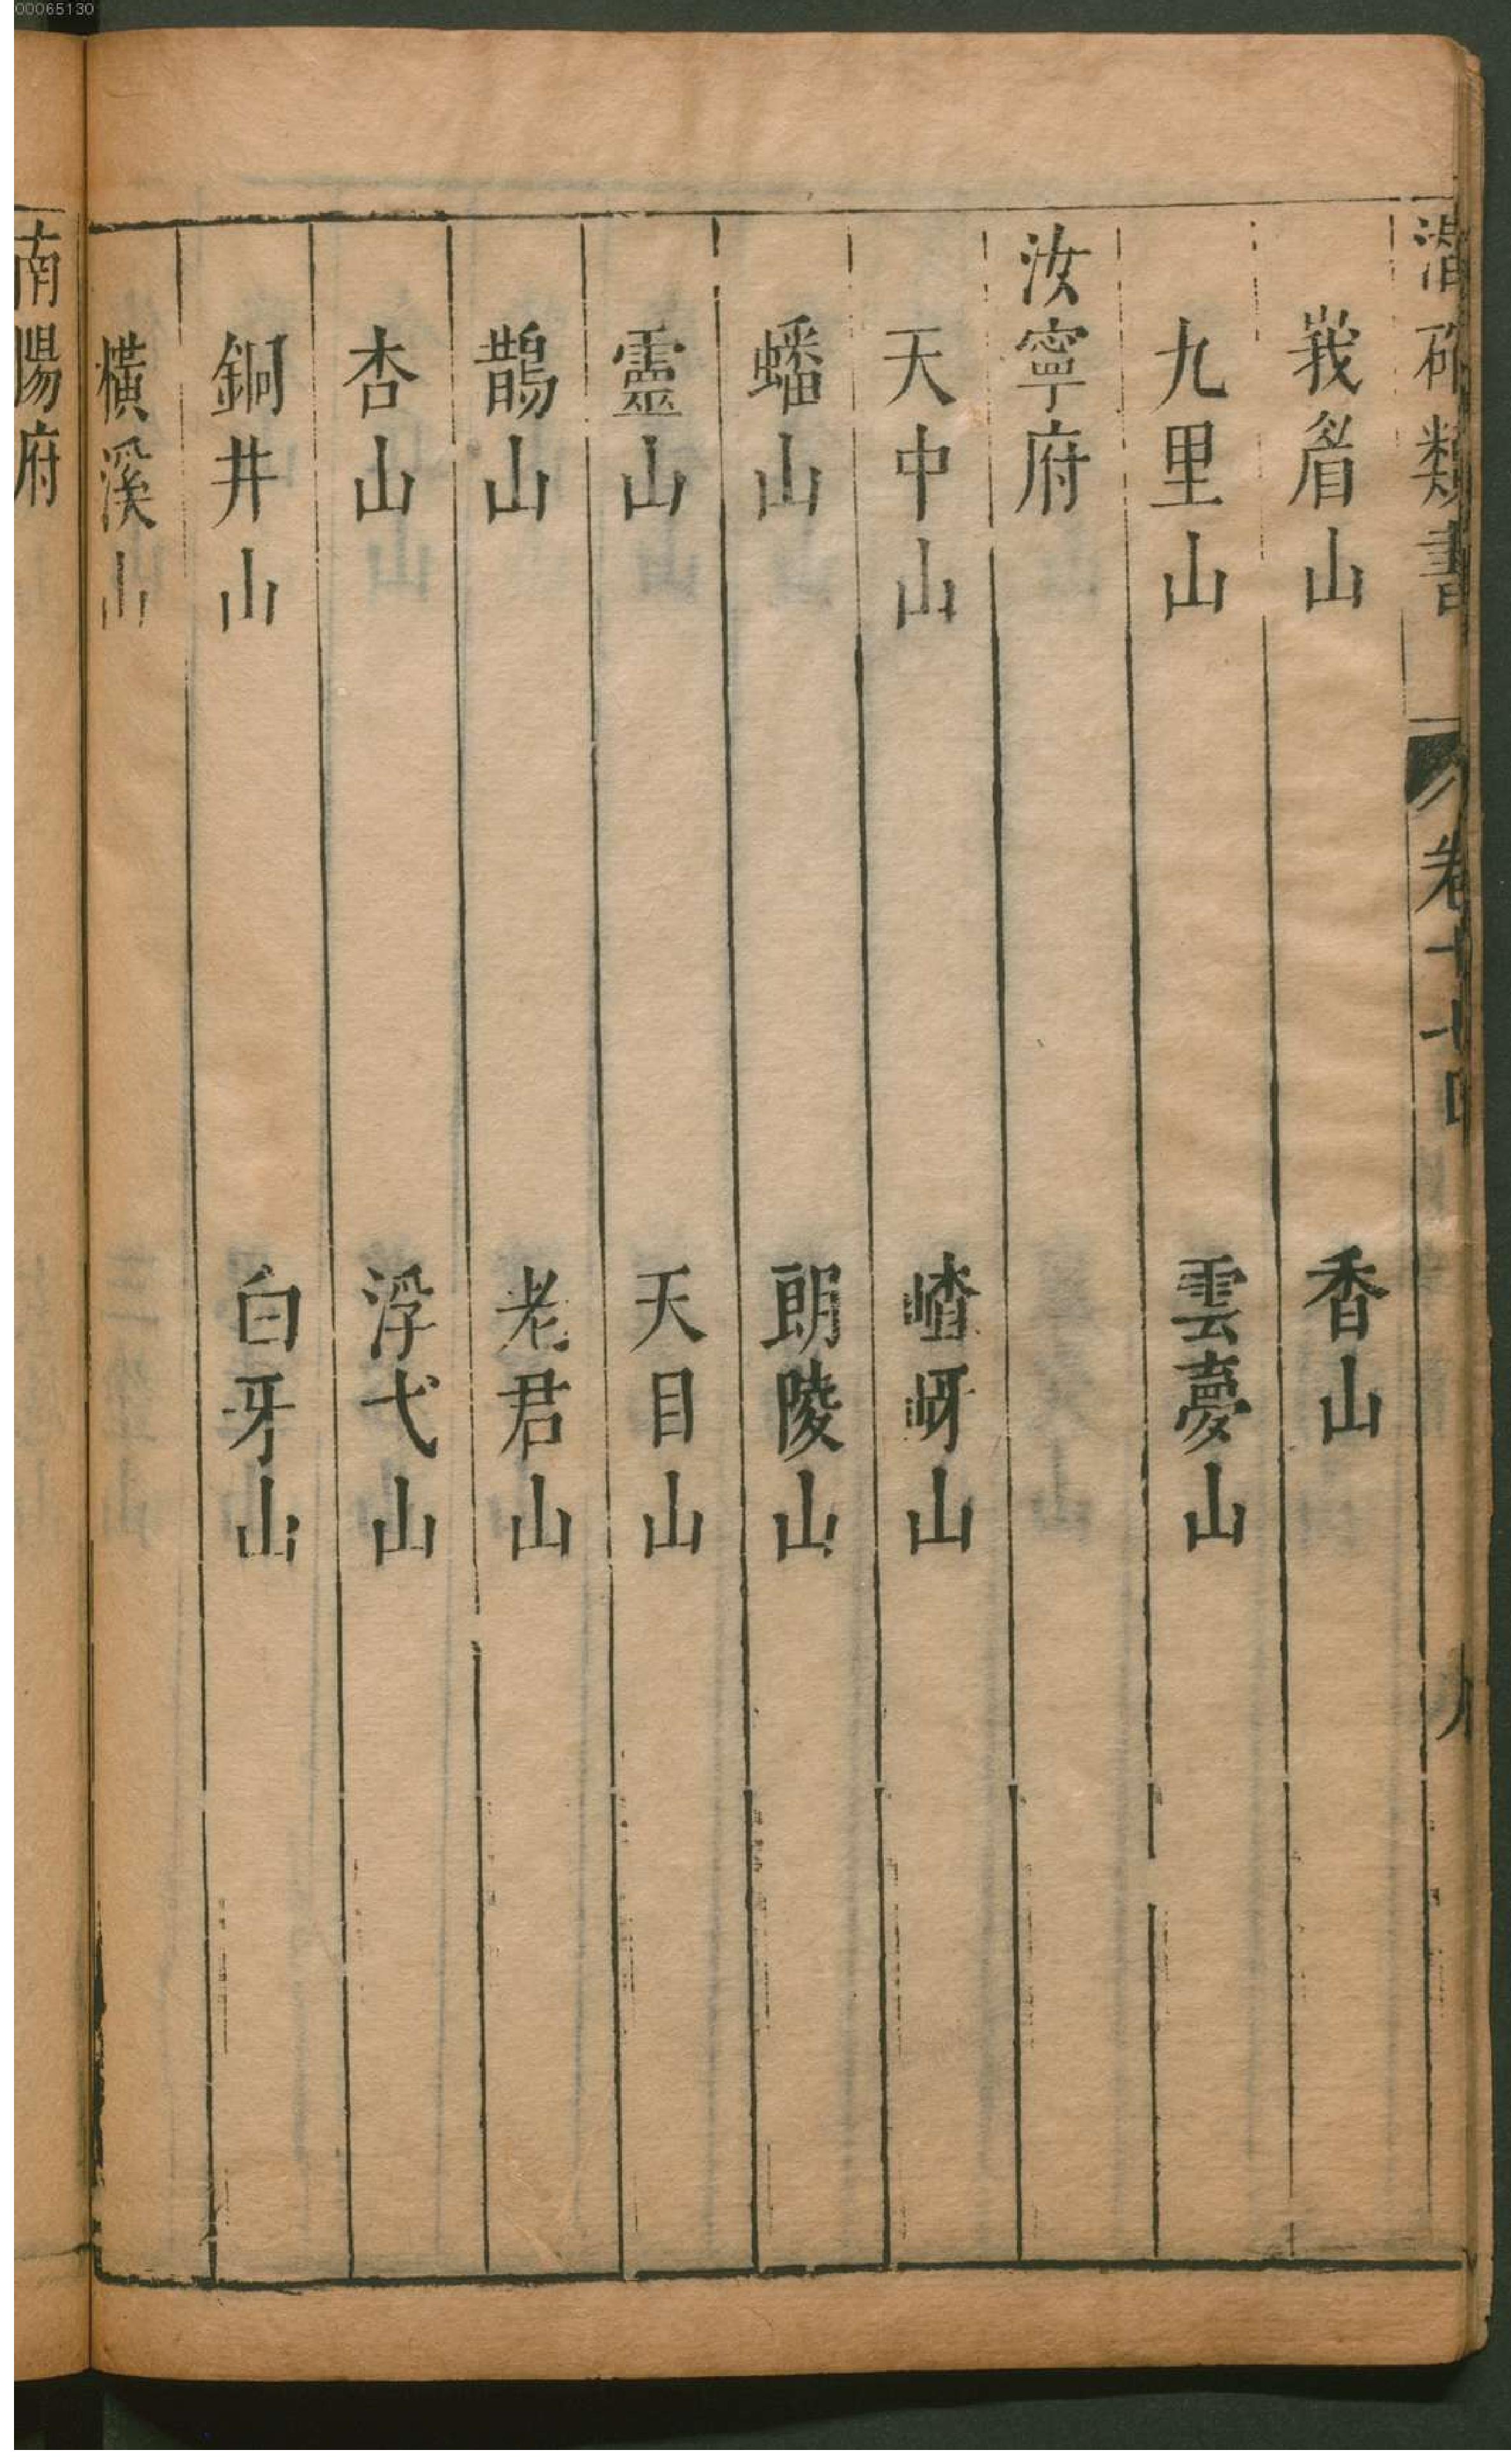 潛確類書 卷七十四 九
峩眉山 香山
九里山 雲夢山
汝寧府
天中山 嵖岈山
蟠山 朗陵山
靈山 天目山
鵲山 老君山
杏山 浮弋山
銅井山 白牙山
橫溪山
南陽府
00065130